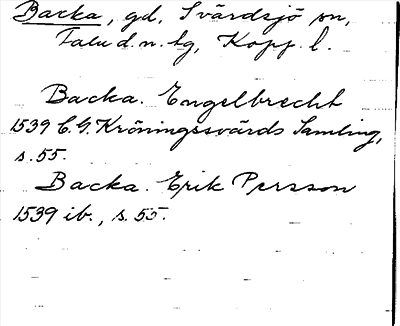 Backa, gd, Svärdsjö sn,
Falu d.n. tg, Kopp. l.
Backa. Engelbrecht
1539 C. G. Kröningssvärds Samling,
s. 55.
Backa. Erik Persson
1539 ib., s. 55.